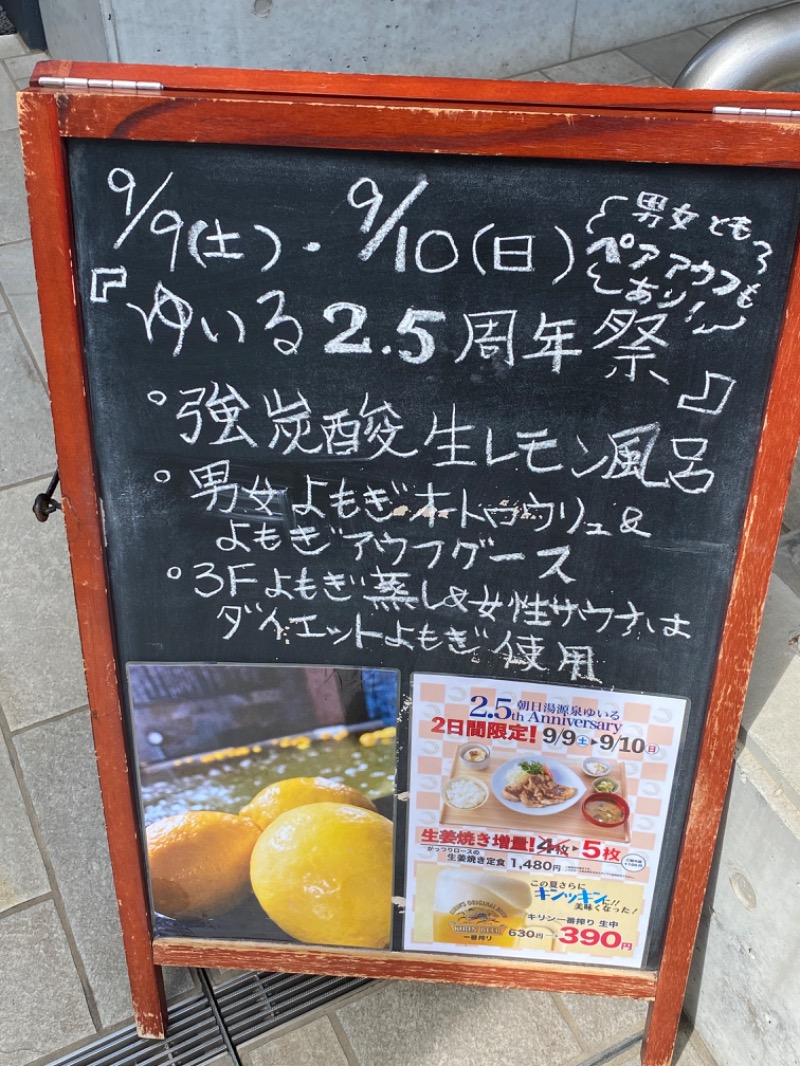 9/9(土)・9/10(日)
男女とも
ペアアウフも
あり!
『ゆいる2.5周年祭』
◦強炭酸生レモン風呂
◦男女よもぎオートロウリュ&
よもぎアウフグース
◦3Fよもぎ蒸し&女性サウナは
ダイエットよもぎ使用
2.5 朝日湯源泉ゆいる
th Anniversary
2日間限定! 9/9土▶9/10日
生姜焼き増量!4枚▶5枚
がっつりロースの
生姜焼き定食 1,480円
この夏さらに
キンッキンに!!
美味くなった!
KIRIN BEER
一番搾り
キリン一番搾り 生中
630円→390円